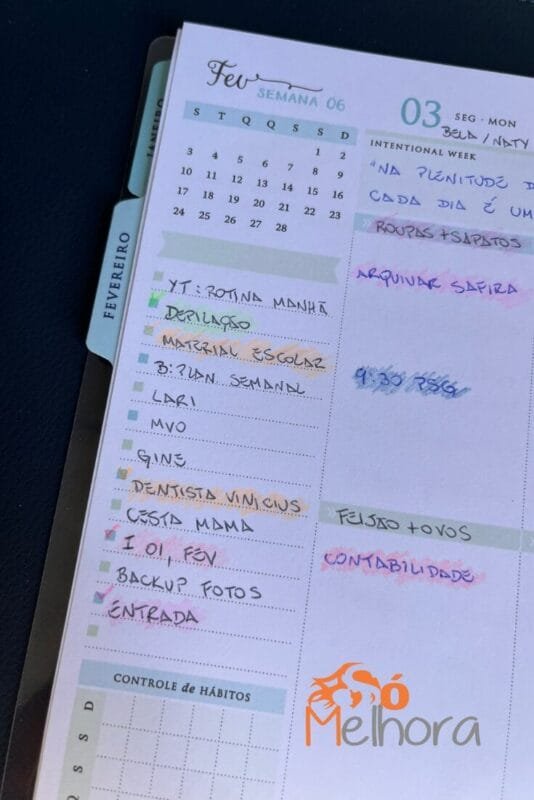 JANEIRO
FEVEREIRO
Fev
SEMANA 06
S T Q Q S S D
1 2
3 4 5 6 7 8 9
10 11 12 13 14 15 16
17 18 19 20 21 22 23
24 25 26 27 28
YT: ROTINA MANHÃ
DEPILAÇÃO
MATERIAL ESCOLAR
B: PLAN SEMANAL
LARI
MVO
GINE
DENTISTA VINICIUS
CESTA MAMA
I 01, FEV
BACKUP FOTOS
ENTRADA
CONTROLE de HÁBITOS
D
S
S
03 SEG · MON
BELA / NATY
INTENTIONAL WEEK
"NA PLENITUDE D
CADA DIA É UM
ROUPAS + SAPATOS
ARQUIVAR SAFIRA
9:30 PSG
FEIJÃO + OVOS
CONTABILIDADE
Só
Melhora